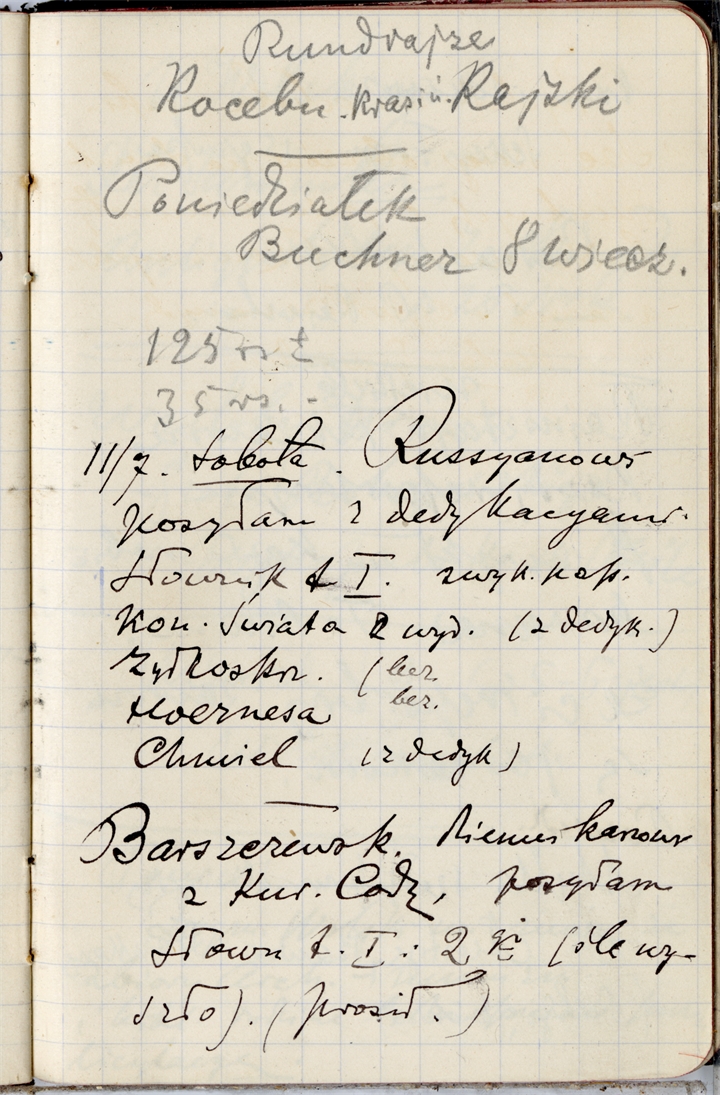 Rundrajze
Rocebu. Krasiń. Rajski
Poniedziałek
Buchner 8 wiecz.
125 rs
35 rs. -
11/7. Sobota. Russyanowi
posyłam z dedykacyami.
Słownik t I. zwyk. pap.
Kon. Świata 2 wyd. (z dedyk.)
Żydkoskr. (bez.
Hoernesa bez.
Chmiel (z dedyk)
Barszczewsk.
z Kur. Codz, posyłam
Słown t. I: 2 (ile wy-
szło). (prosił.)